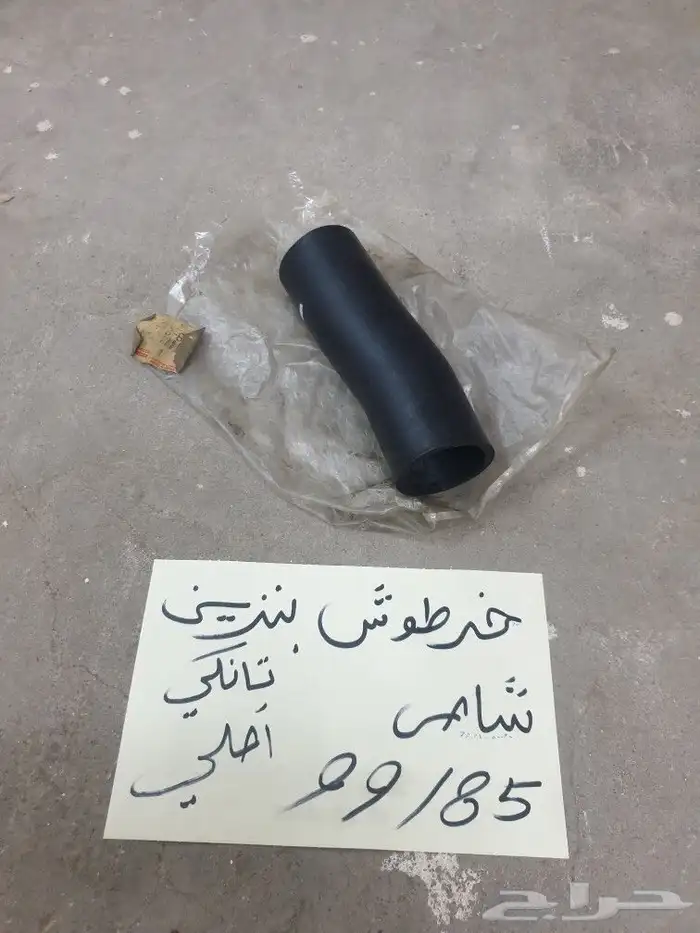 خرطوش بنزين
شاص تانكي
99/85 اصلي
حراج